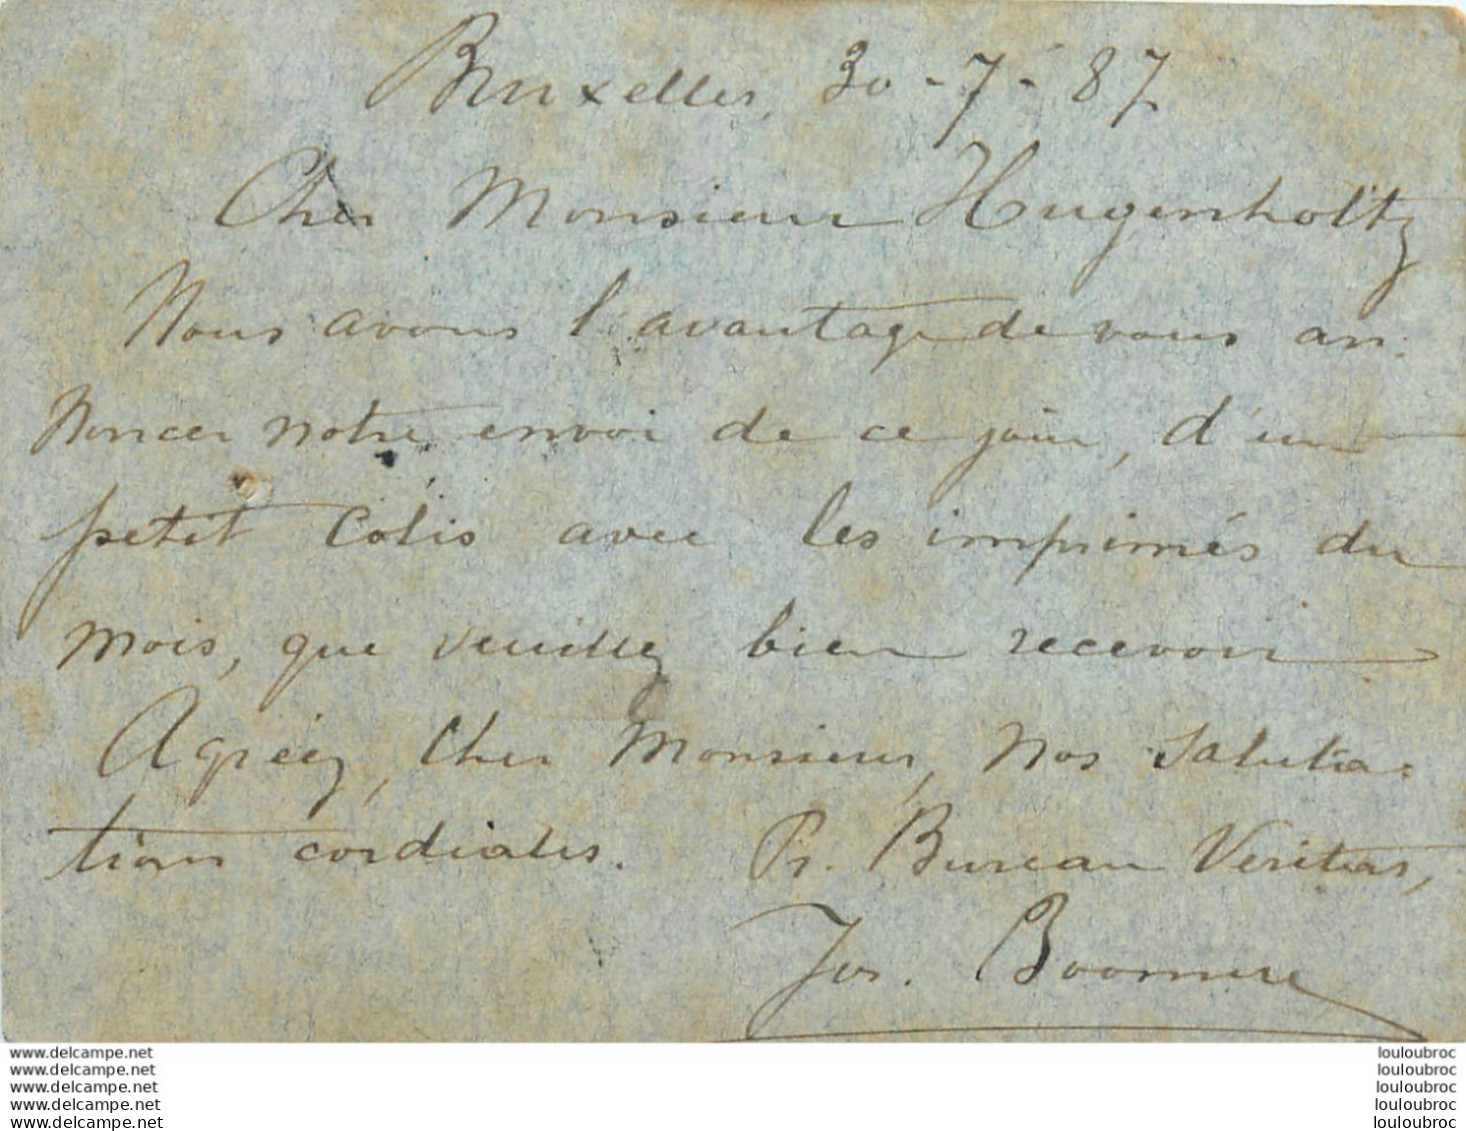 Bruxelles, 30-7-87
Cher Monsieur Hugenholtz
Nous avons l'avantage de vous an-
noncer notre envoi de ce jour, d'un
petit colis avec les imprimés du
mois, que veuillez bien recevoir
Agréez, Cher Monsieur, nos saluta-
tions cordiales. Pr. Bureau Veritas,
Jos.
www.delcampe.net
www.delcampe.net
www.delcampe.net
www.delcampe.net
www.delcampe.net
louloubroc
louloubroc
louloubroc
louloubroc
louloubroc